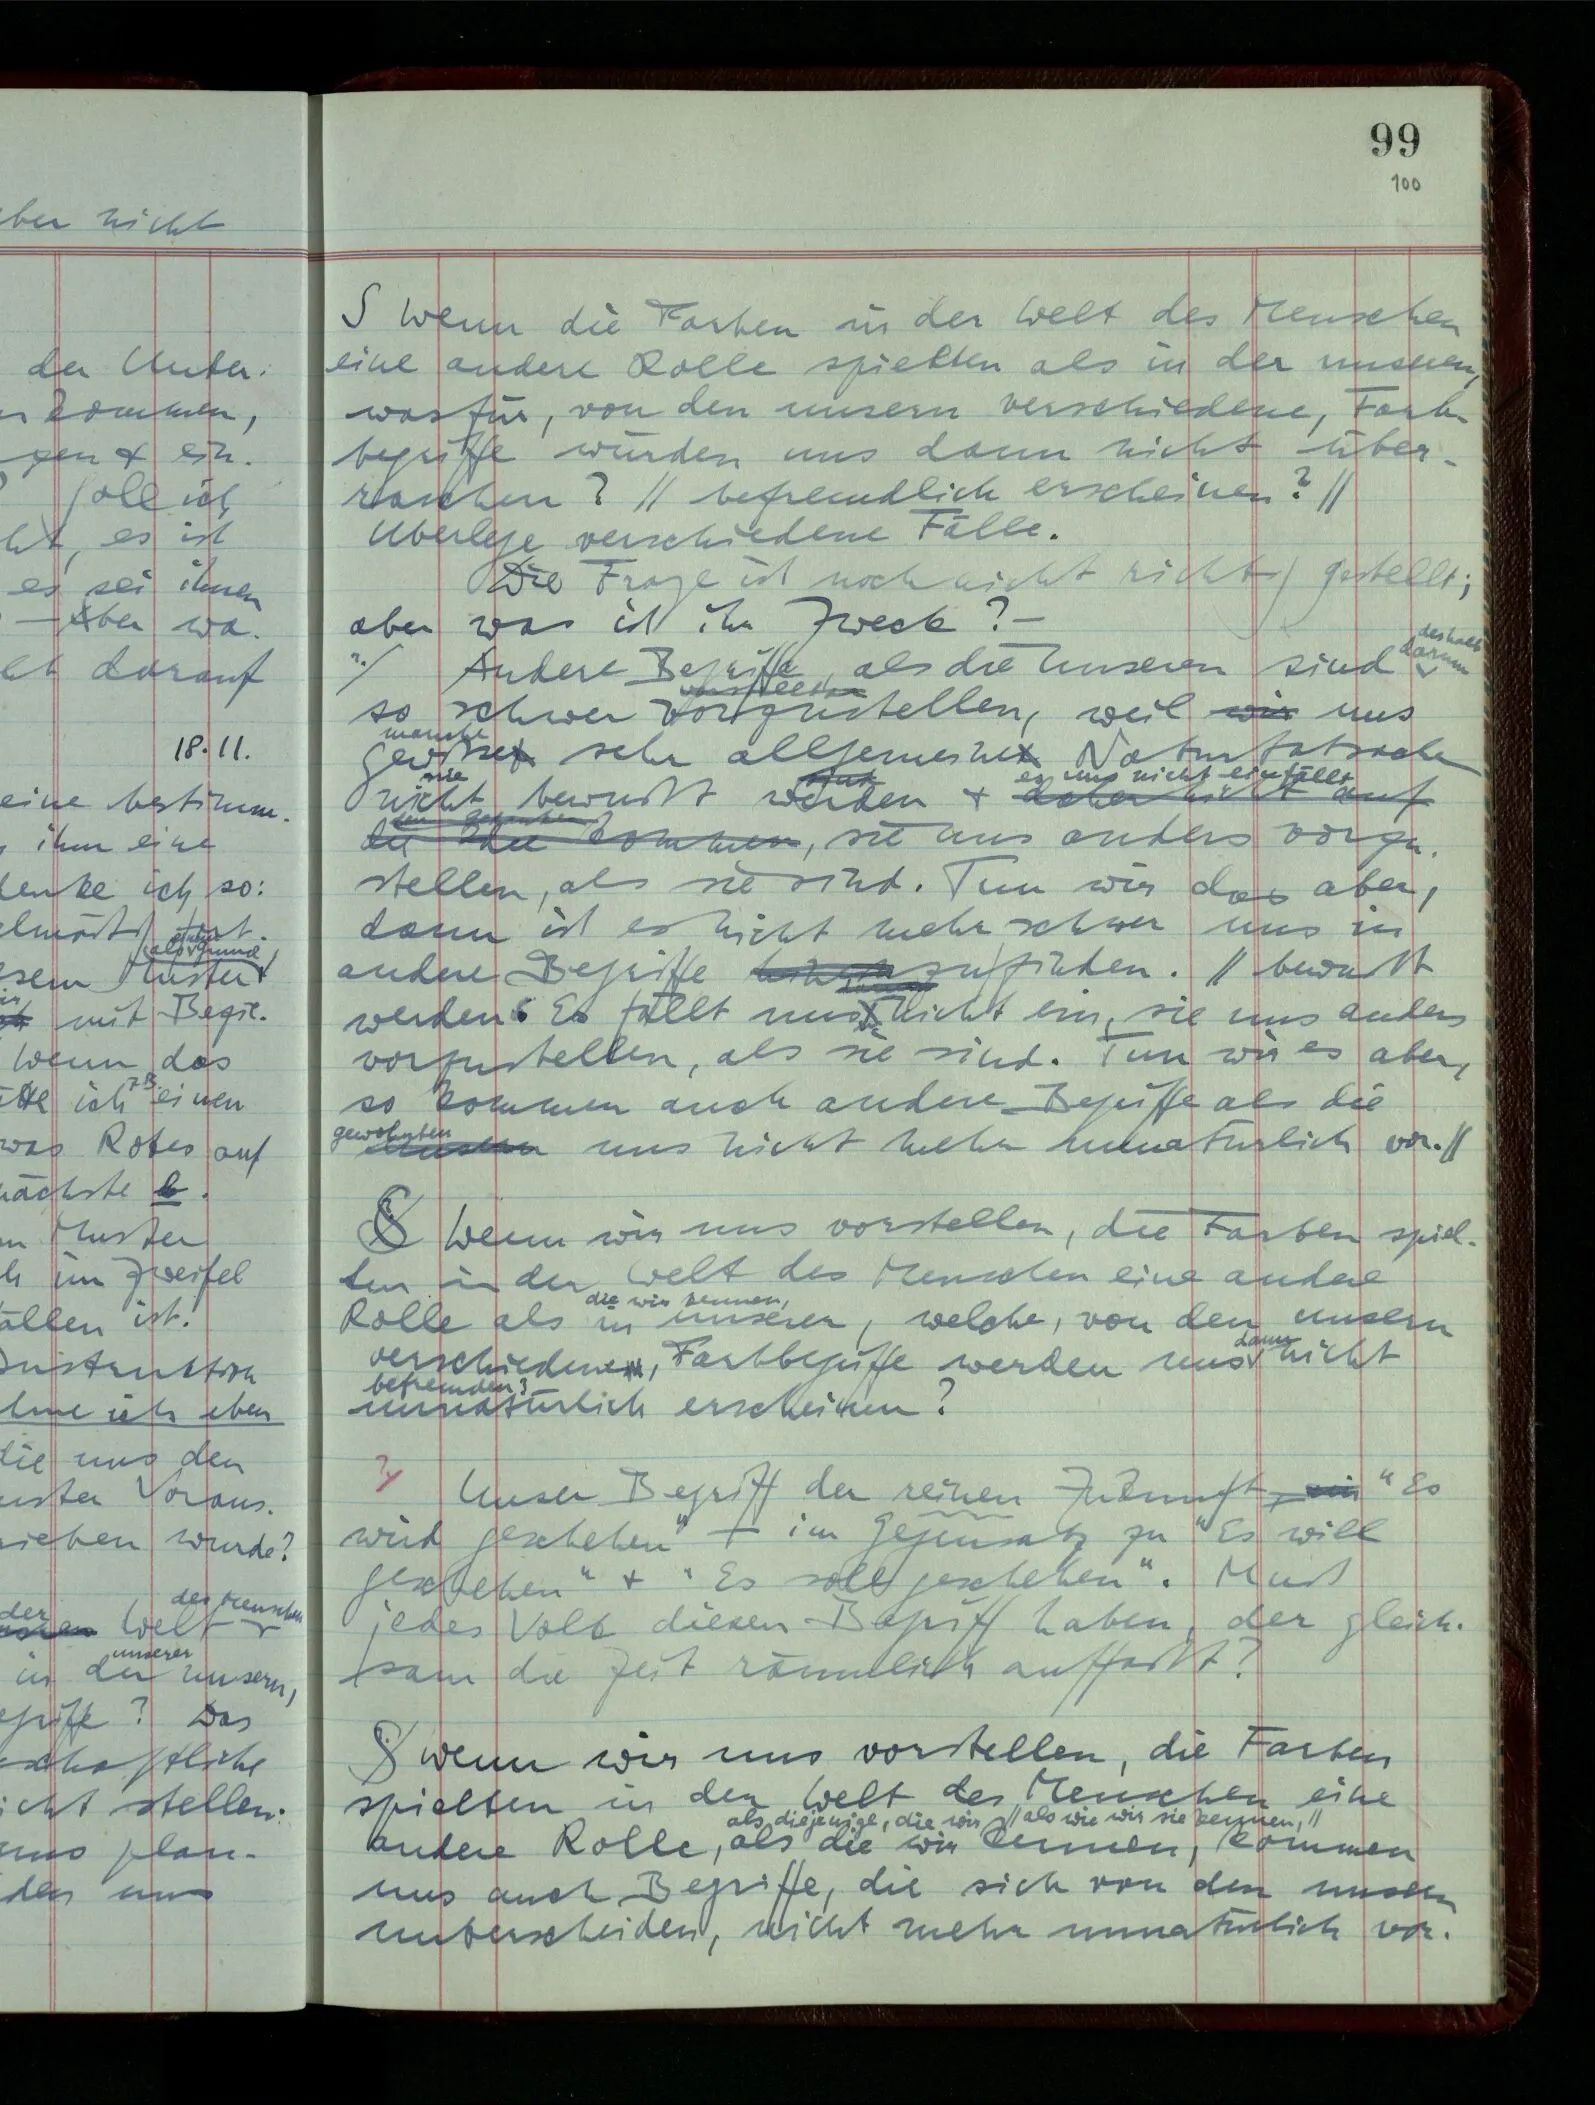 ber nicht
der Unter-
kommen,
gen & ein-
soll ich
es ist
es sei ihnen
— Aber wa-
darauf
18.11.
eine bestimm-
ihm eine
denke ich so:
als Grund
Muster
mit Begie-
Wenn das
z.B.
ich einen
was Rotes auf
nächste b.
Muster
im Zweifel
fallen ist.
Instruktion
ich eben
die uns den
Voraus-
wurde?
des Menschen
der
Welt
unserer
in der unsern,
griffe? Das
schaftliche
icht stellen:
uns plau-
den uns
99
100
S Wenn die Farben in der Welt des Menschen
eine andere Rolle spielten als in der unseren,
was für, von den unsern verschiedene, Farb-
begriffe würden uns dann nicht über-
raschen? // befremdlich erscheinen? //
Überlege verschiedene Fälle.
Die Frage ist noch nicht richtig gestellt;
aber was ist ihr Zweck? —
deshalb
darum
?/ Andere Begriffe, als die Unseren sind
so schwer vorzustellen, weil wir uns
manche
gewisse sehr allgemeine Naturtatsachen
nie sind es uns nicht einfällt
nicht bewußt werden & daher nicht auf
den Gedanken
die Idee kommen, sie uns anders vorzu-
stellen, als sie sind. Tun wir das aber,
dann ist es nicht mehr schwer uns in
andere Begriffe zufinden. // bewußt
werden. Es fällt uns nicht ein, sie uns anders
vorzustellen, als sie sind. Tun wir es aber,
so kommen auch andere Begriffe als die
gewohnten
unsern uns nicht mehr unnatürlich vor. //
S Wenn wir uns vorstellen, die Farben spiel-
ten in der Welt des Menschen eine andere
die wir kennen,
Rolle als in unserer, welche, von den unsern
dann
verschiedenen, Farbbegriffe werden uns nicht
befremden?
unnatürlich erscheinen?
?/ Unser Begriff der reinen Zukunft, ein "Es
wird geschehen" — im Gegensatz zu "Es will
geschehen" & "Es soll geschehen". Muß
jedes Volk diesen Begriff haben, der gleich-
sam die Zeit räumlich auffaßt?
S Wenn wir uns vorstellen, die Farben
spielten in der Welt des Menschen eine
als diejenige, die wir // als wie wir sie kennen, //
andere Rolle, als die wir kennen, kommen
uns auch Begriffe, die sich von den unsern
unterscheiden, nicht mehr unnatürlich vor.